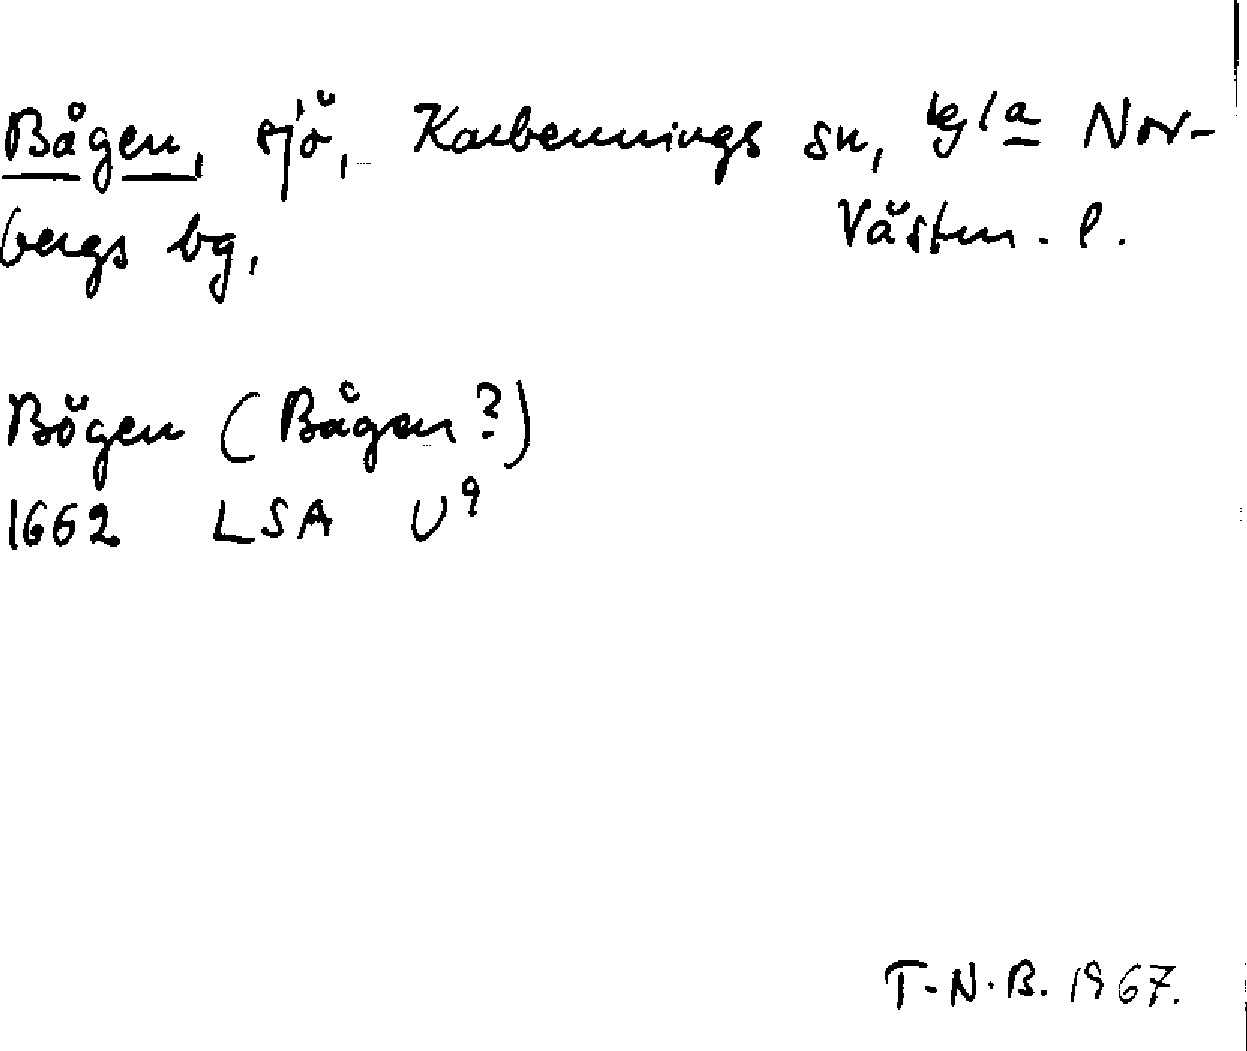 Bågen, sjö, Karbennings sn, g/a Nor-
bergs bg, Västm. l.
Bögen (Bågen?)
1662 LSA U9
T.N.B. 1967.